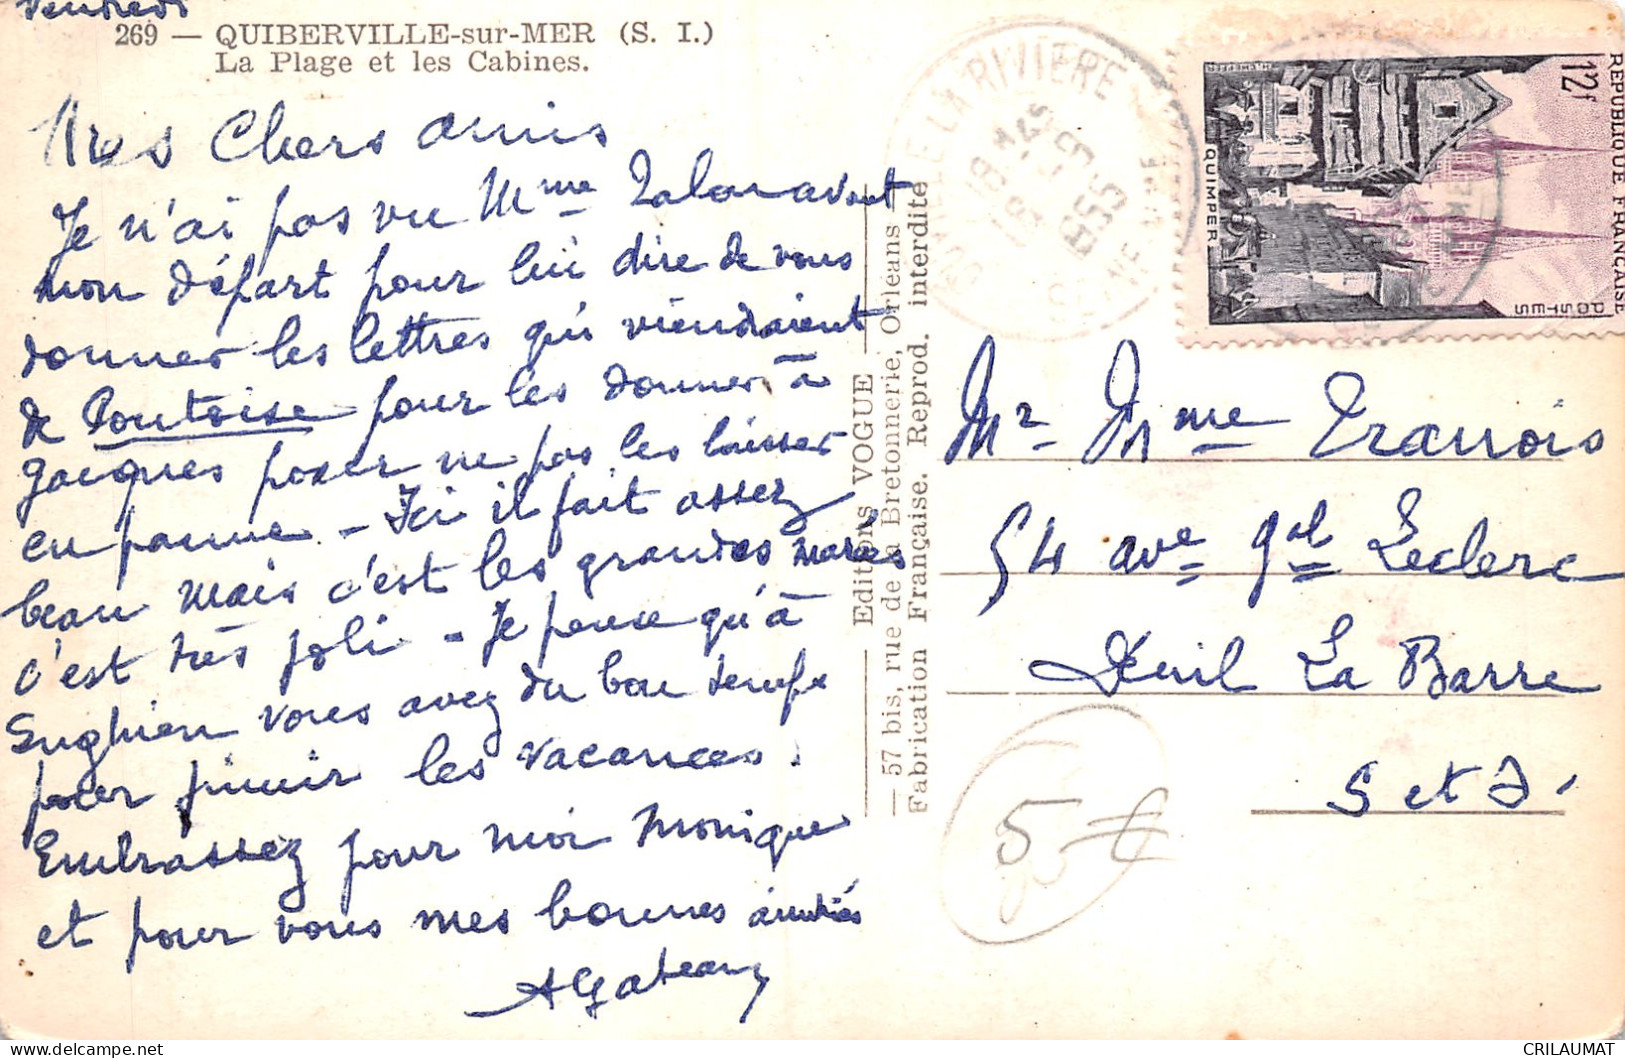 Vendredi
269 — QUIBERVILLE-sur-MER (S. I.)
La Plage et les Cabines.
Mes Chers amis
Je n'ai pas vu Mme avant
mon départ pour lui dire de vous
donner les lettres qui viendraient
de Pontoise pour les donner à
Jacques pour ne pas les laisser
en panne – Ici il fait assez
beau mais c'est les grandes marées
c'est très joli – Je pense qu'à
Enghien vous avez du bon temps
pour finir les vacances.
Embrassez pour moi Monique
et pour vous mes bonnes amitiés
AGateau
Editions VOGUE
— 57 bis, rue de la Bretonnerie, Orléans —
Fabrication Française. Reprod. interdite
LA RIVIERE
18 H 45
1953
REPUBLIQUE FRANÇAISE
12f
POSTES
QUIMPER
Mr Mme
54 ave gal Leclerc
Deuil La Barre
S et O.
5€
CRILAUMAT